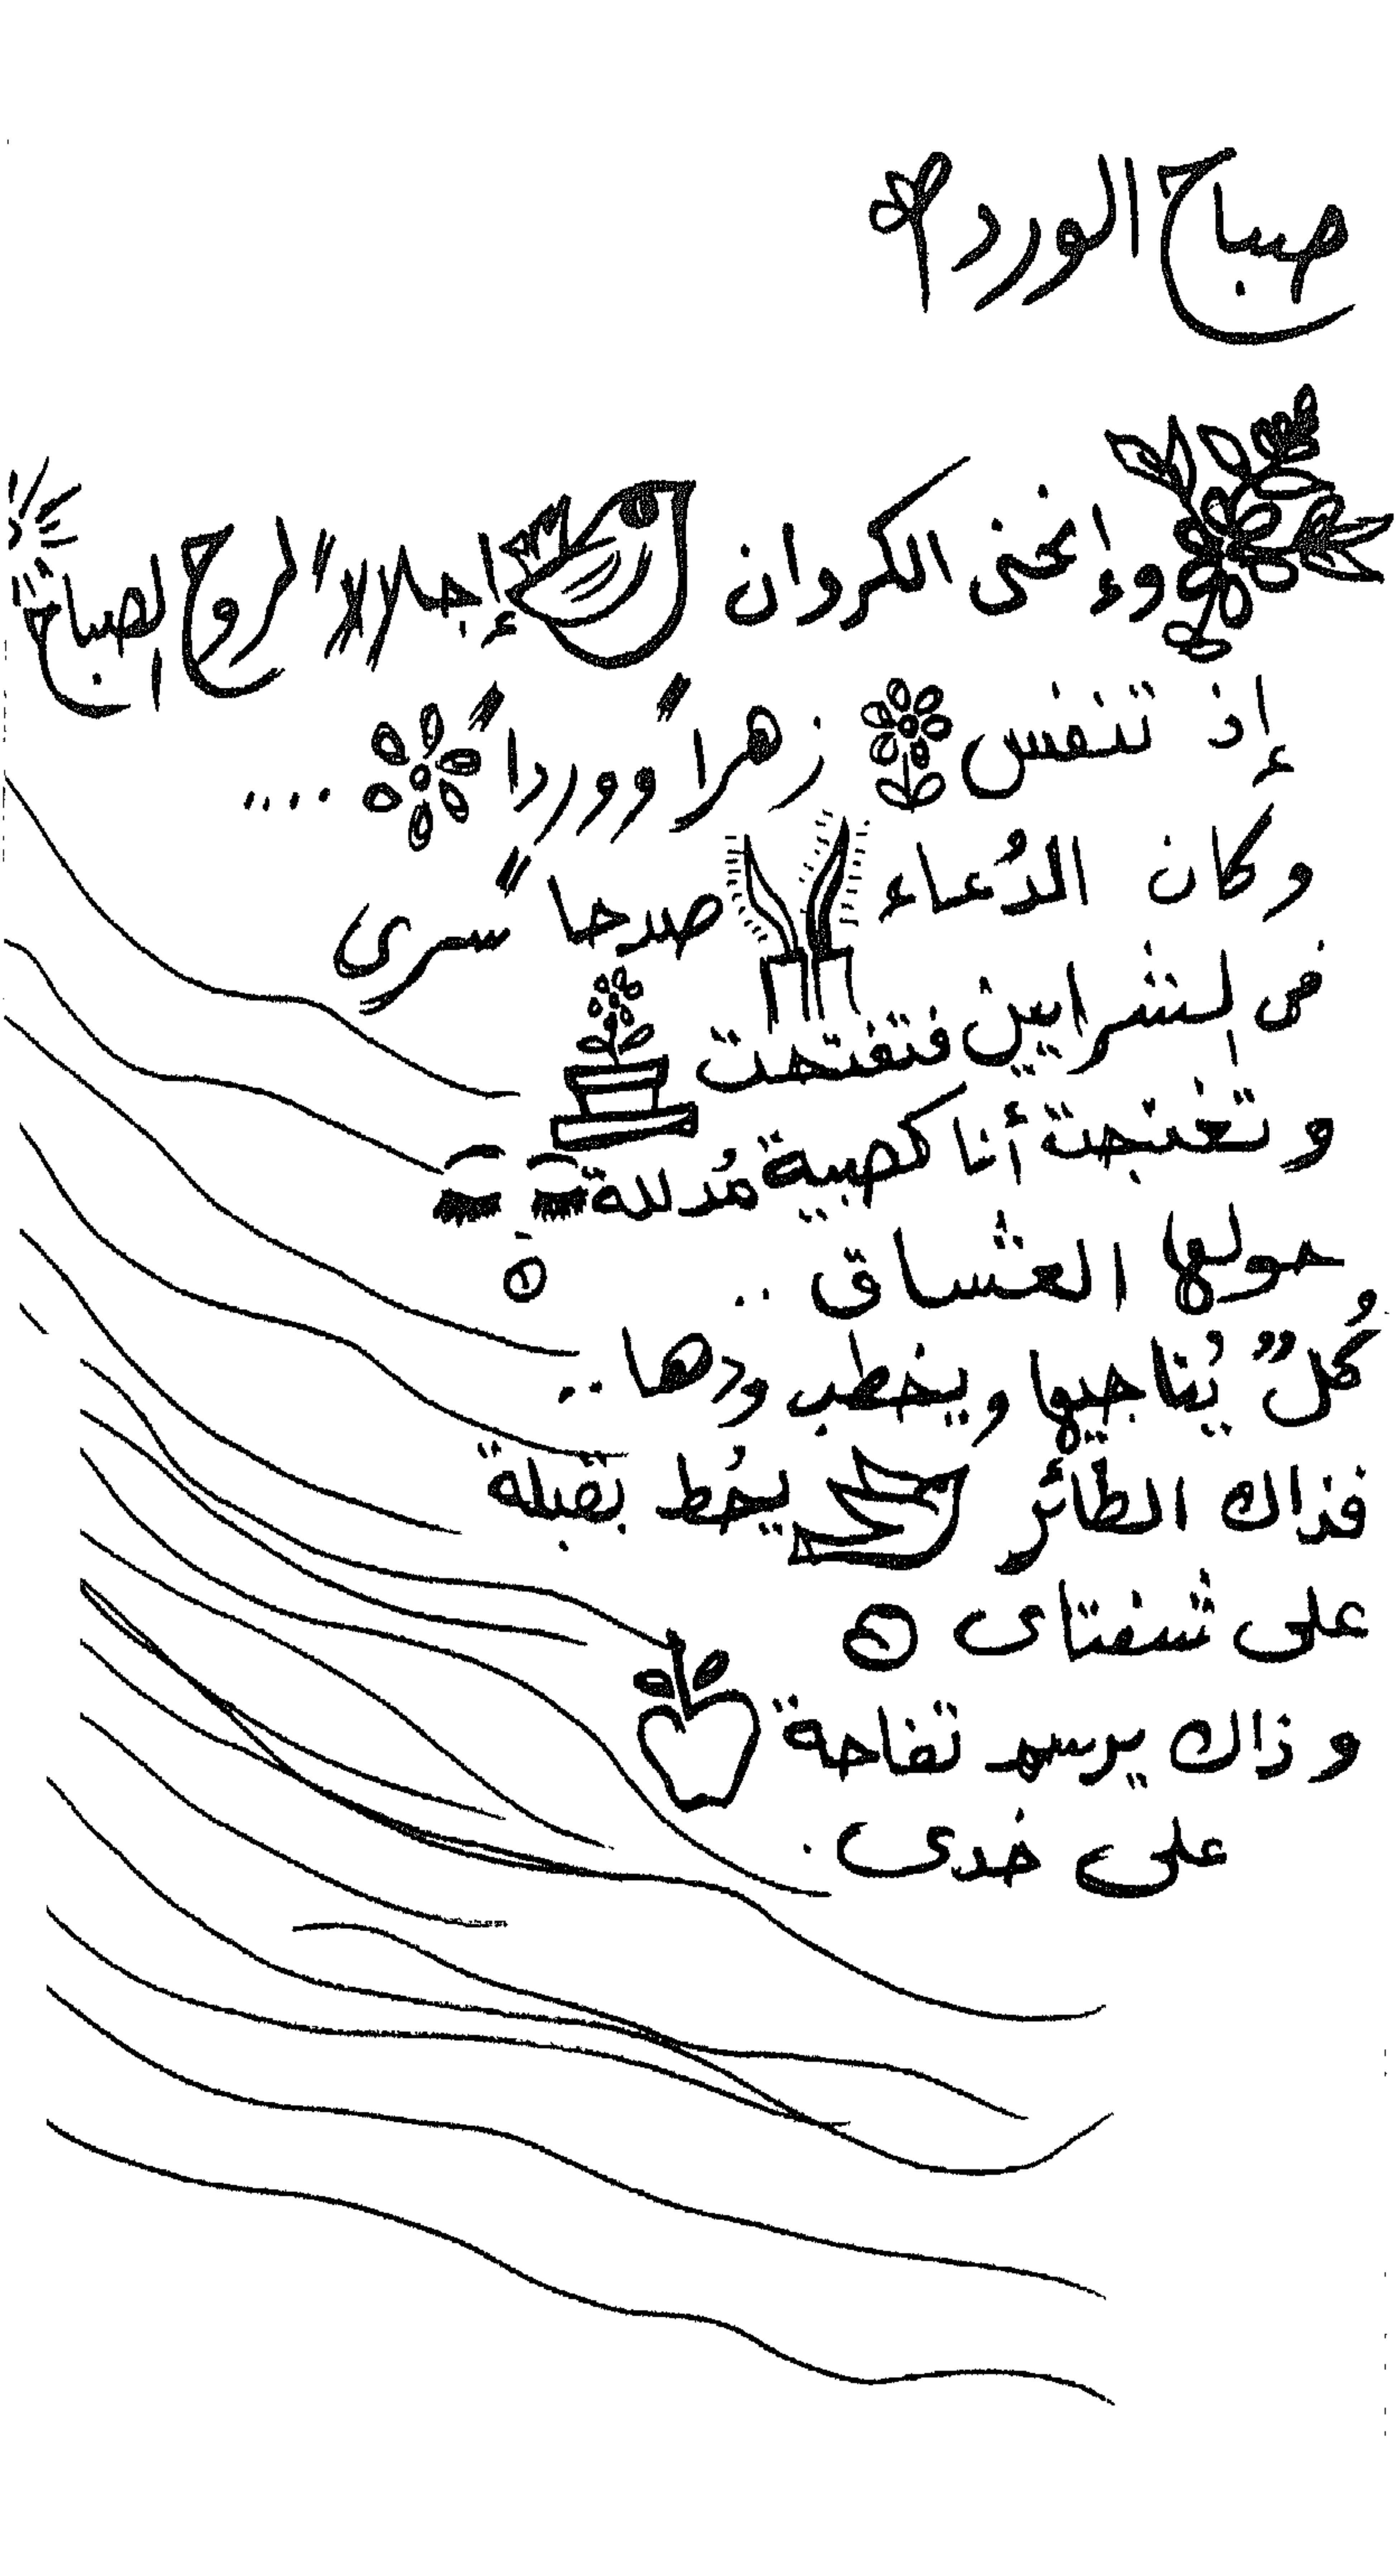 صباح الورد
وإنحنى الكروان إجلالاً لروح الصباح
إذ تنفس زهراً وورداً ....
وكان الدُعاء صدحاً سرى
في الشرايين فتفتحت
وتغنجت أنا كصبية مُدللة
حولها العشاق ..
كُلٌ يُناجيها ويخطب ودها ..
فذاك الطائر يحُط بقبلة
على شفتاى
وذاك يرسم تفاحة
على خدى .